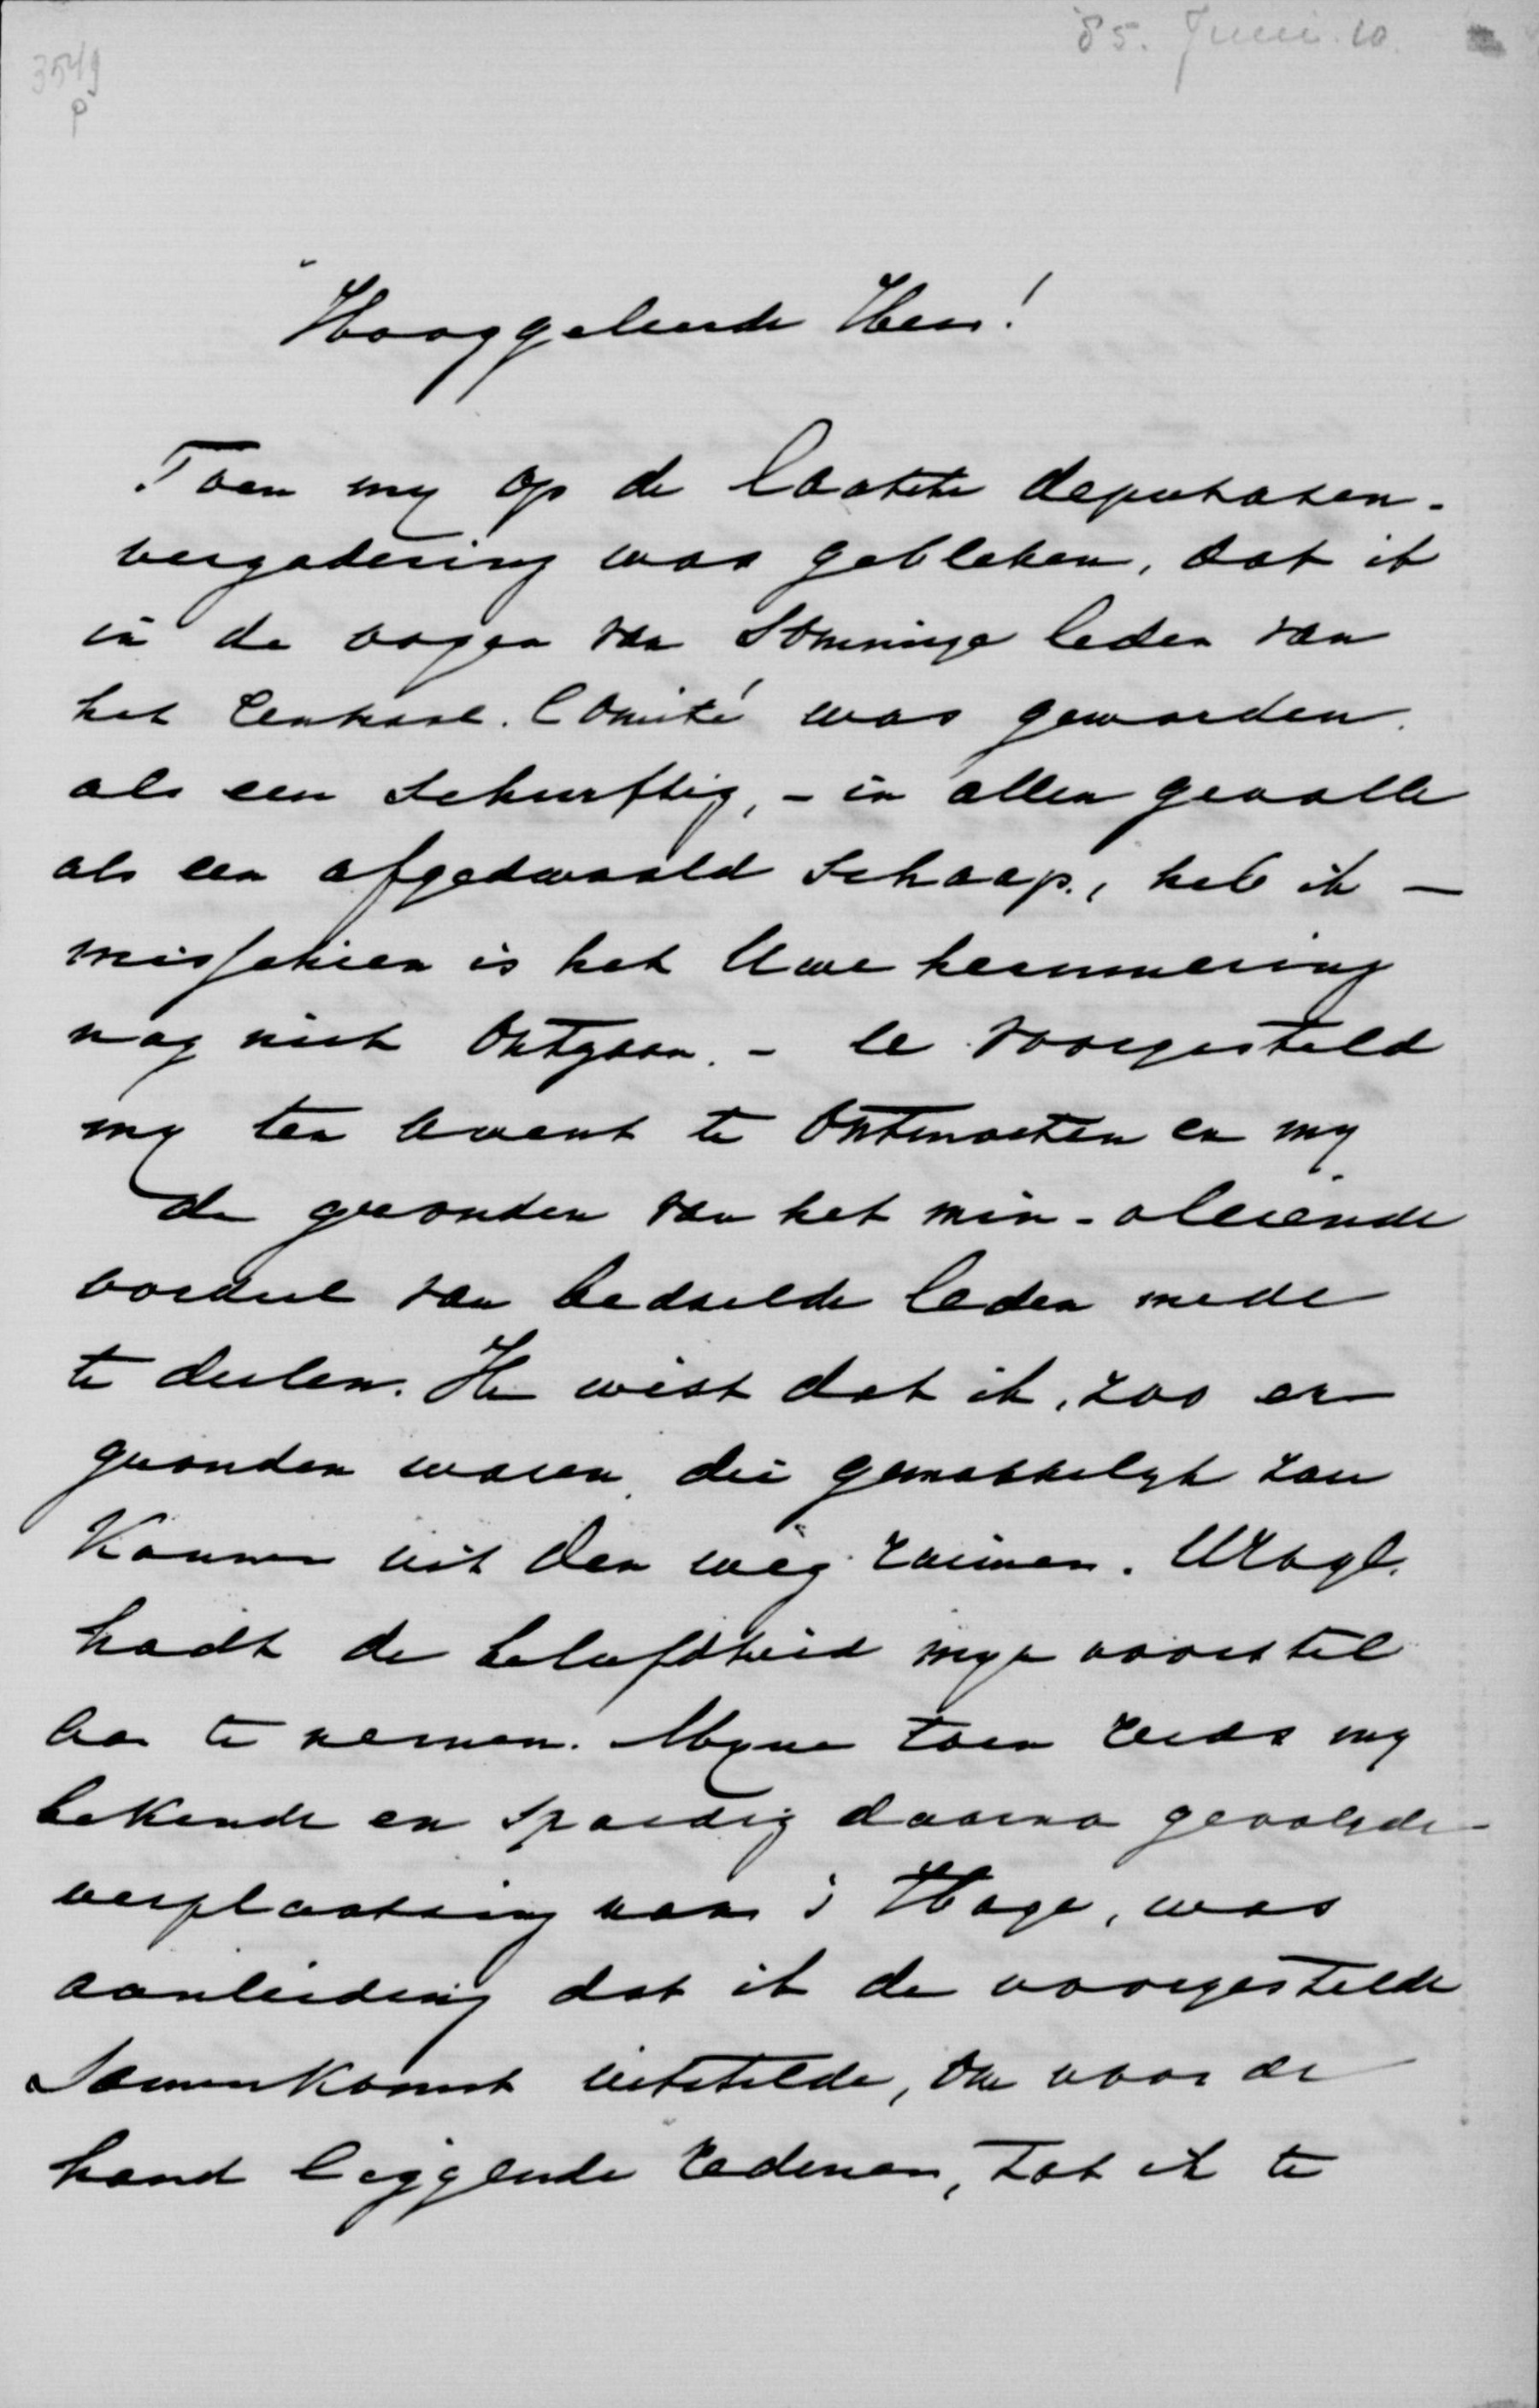 85. Juni. 10.
3549
p
Hooggeleerde Heer!
Toen my op de laatste deputaten-
vergadering was gebleken, dat ik
in de oogen van sommige leden van
het Centraal. Comité was geworden
als een schurftig, - in allen gevalle
als een afgedwaald schaap, heb ik -
misschien is het Uwe herinnering
nog niet ontgaan. - U voorgesteld
my ten Uwent te ontmoeten en my
de gronden van het min-vleiende
oordeel van bedoelde leden mede
te deelen. Ik wist dat ik, zoo er
gronden waren, die gemakkelyk zou
kunnen uit den weg ruimen. UHoogl.
hadt de beleefdheid myn voorstel
aan te nemen. Myne toen reeds my
bekende en spoedig daarna gevolgde
verplaatsing naar 's Hage, was
aanleiding dat ik de voorgestelde
samenkomst uitstelde, om voor de
hand liggende redenen, tot ik te